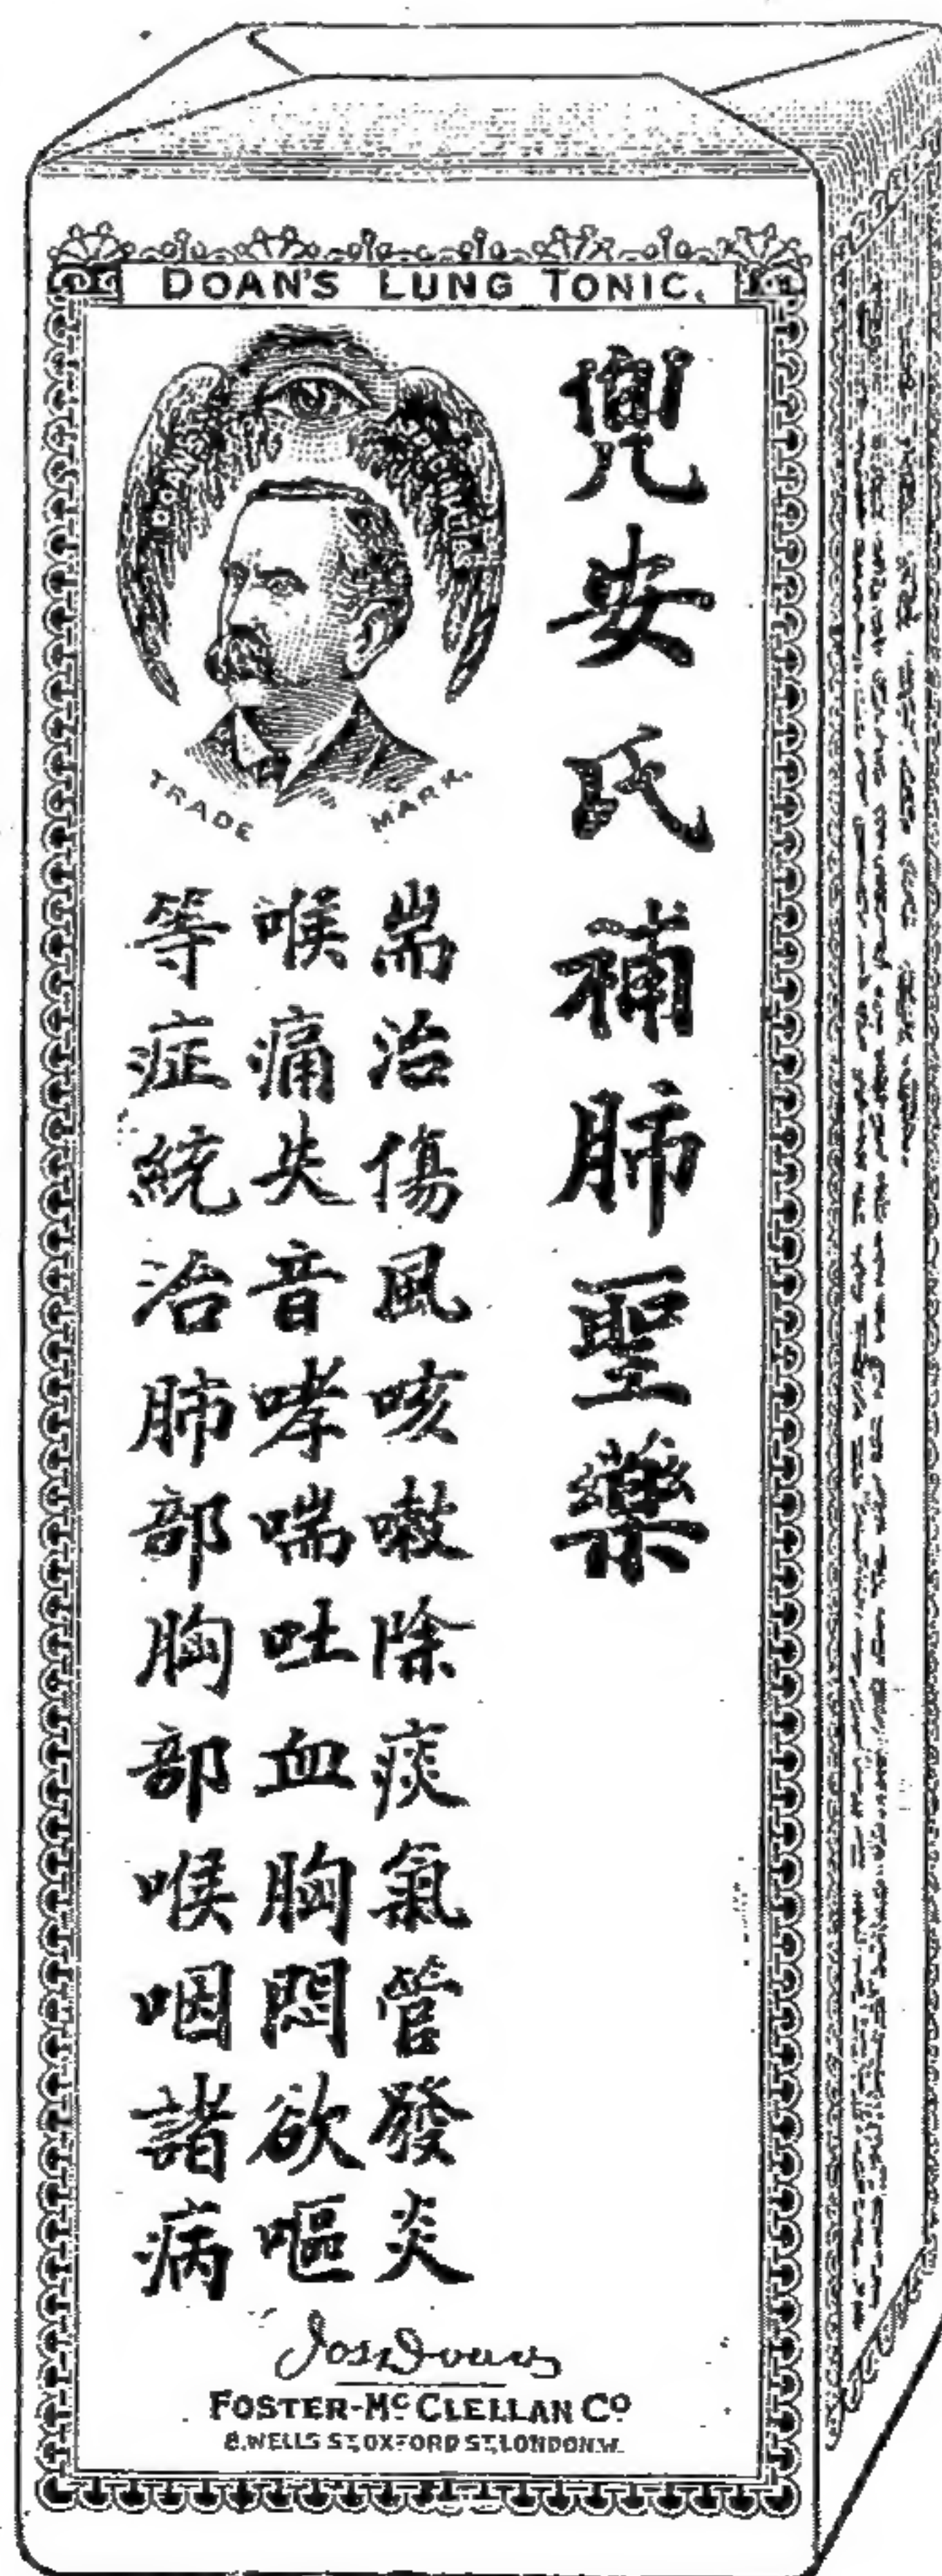 DOAN'S LUNG TONIC.
兜安氏補肺聖藥
DOAN'S
TRADE MARK.
耑治傷風咳嗽除痰氣管發炎
喉痛失音哮喘吐血胸悶欲嘔
等症統治肺部胸部喉咽諸病
Jos Doan
FOSTER-McCLELLAN Co
8, WELLS ST, OXFORD ST, LONDON.W.